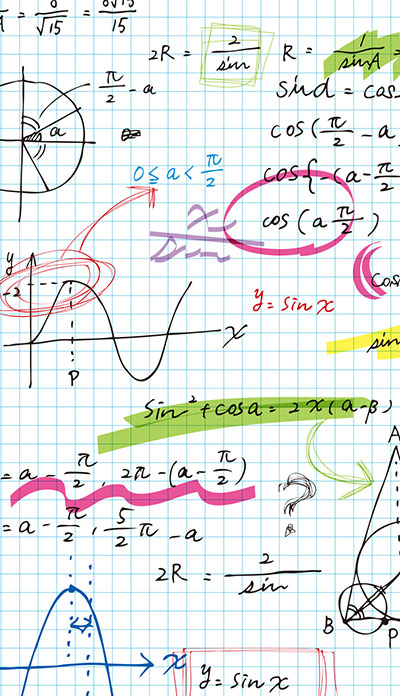 A = 8/√15 = 8√15/15
2R = 2/sin R = 1/sinA =
π/2 - a
sin d = cos
a
cos(π/2 - a
0 ≤ a < π/2
cos{-(a - π/2
cos (a π/2)
x/sin
y
cos
2
y = sin x
x
sin
P
sin² + cos a = 2x(a-β)
A
= a - π/2, 2π - (a - π/2)
?
= a - π/2, 5/2 π - a
2R = 2/sin
B
P
x
y = sin x